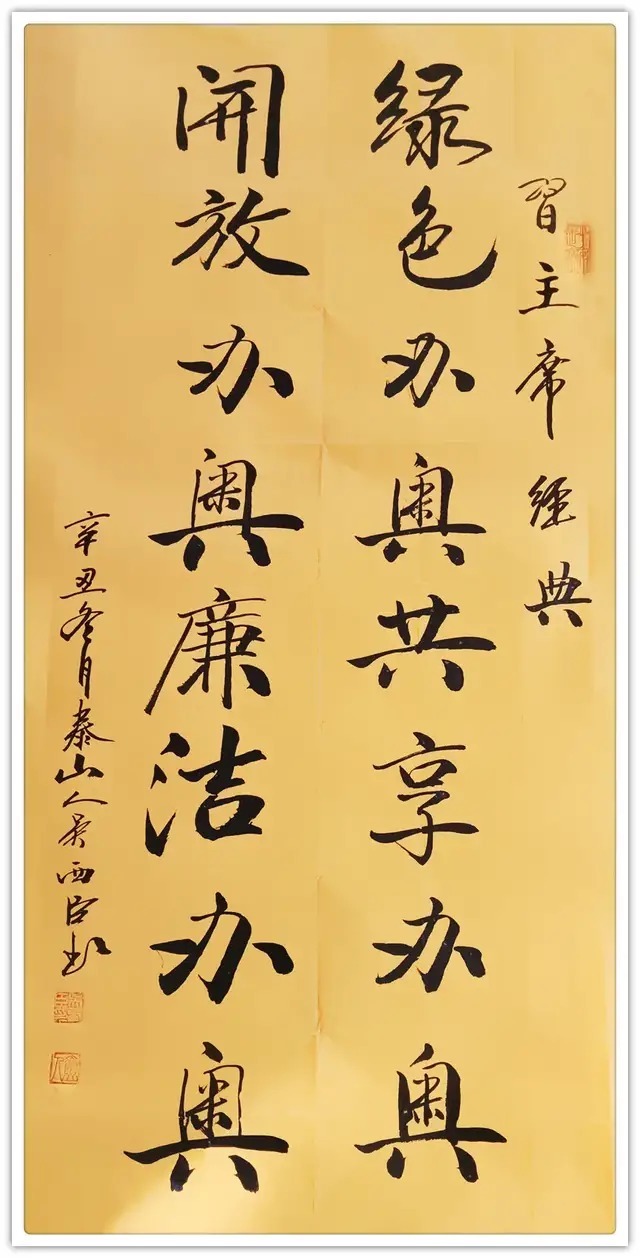 習主席 經典
緑色办奥共享办奥
開放办奥廉洁办奥
辛丑冬月泰山人吴西臣书